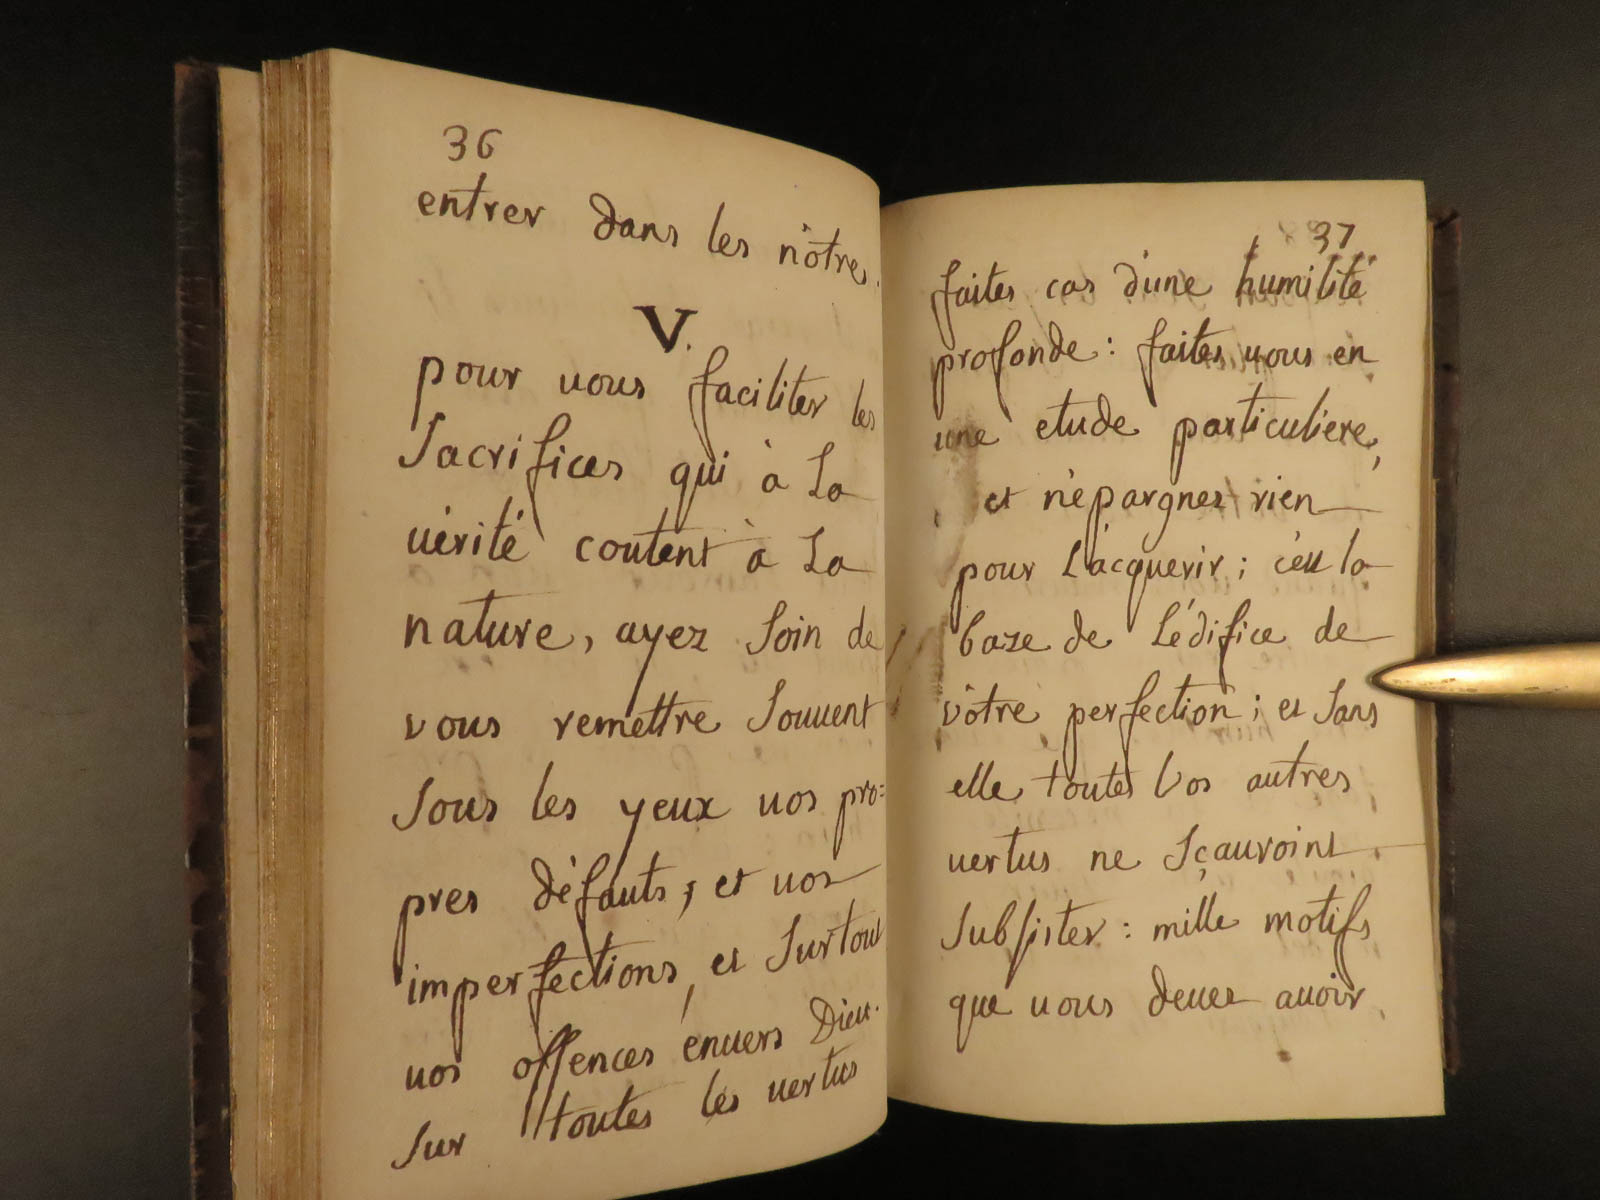 36
entrer dans les nôtres.
V.
pour vous faciliter les
Sacrifices qui à La
vérité coutent à La
nature, ayez Soin de
vous remettre Souuent
Sous les yeux uos pro=
pres défauts, et uos
imperfections, et Surtout
uos offences enuers Dieu.
Sur toutes les uertus
37
faites cas d'une humilité
profonde : faites uous en
une etude particuliere,
et n'épargnez rien
pour L'acquerir ; c'est la
baze de L'édifice de
vôtre perfection ; et Sans
elle toutes Vos autres
uertus ne Sçauroint
Subsister : mille motifs
que uous deuez auoir